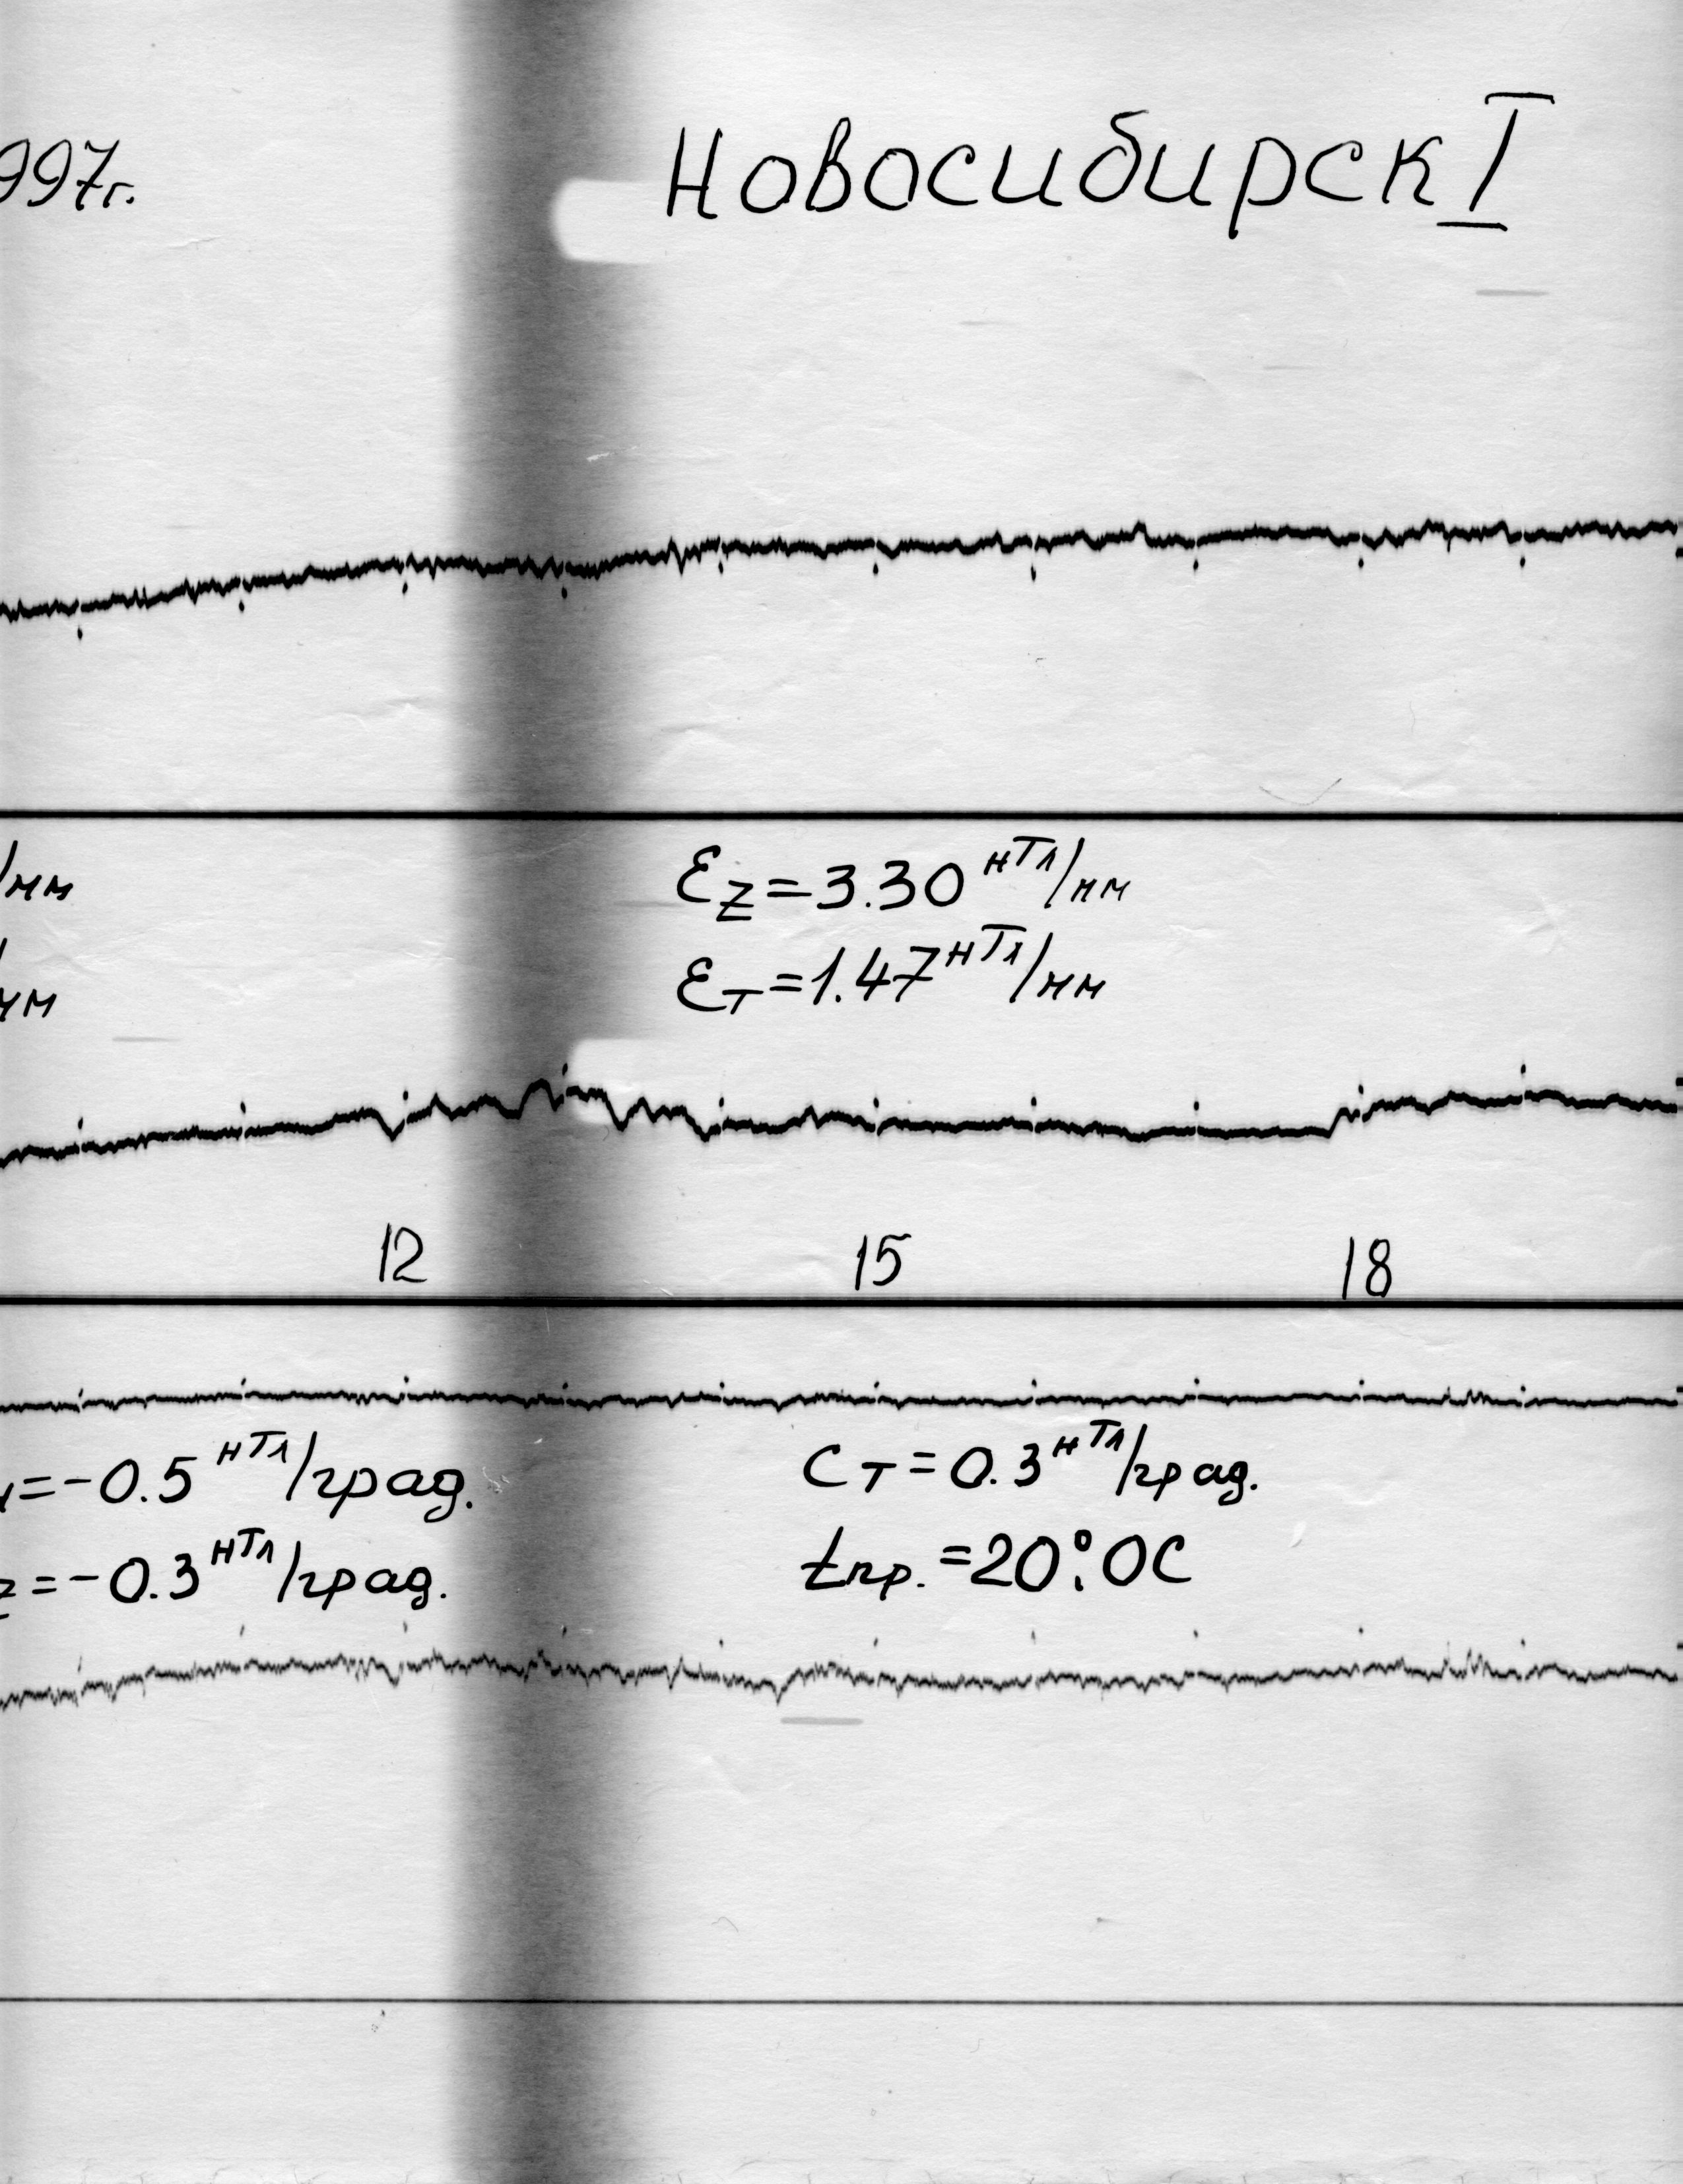 997г.
Новосибирск I
/мм
/мм
Ɛz=3.30 нТл/мм
Ɛт=1.47 нТл/мм
12
15
18
=-0.5 нТл/град.
z=-0.3 нТл/град.
Cт=0.3 нТл/град.
tпр.=20°.0C